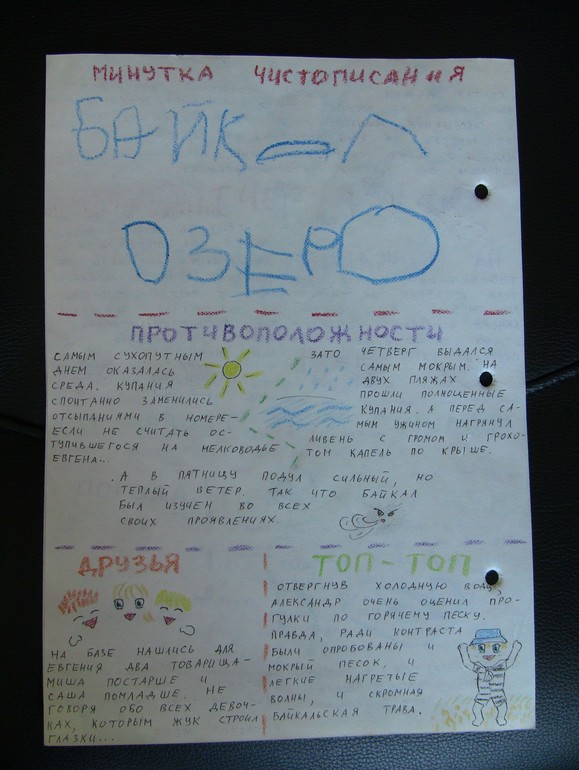 МИНУТКА ЧИСТОПИСАНИЯ
БАЙКАЛ
ОЗЕРО
ПРОТИВОПОЛОЖНОСТИ
САМЫМ СУХОПУТНЫМ
ДНЕМ ОКАЗАЛАСЬ
СРЕДА. КУПАНИЯ
СПОНТАННО ЗАМЕНИЛИСЬ
ОТСЫПАНИЯМИ В НОМЕРЕ -
ЕСЛИ НЕ СЧИТАТЬ ОС-
ТУПИВШЕГОСЯ НА МЕЛКОВОДЬЕ
ЕВГЕНА...
ЗАТО ЧЕТВЕРГ ВЫДАЛСЯ
САМЫМ МОКРЫМ. НА
ДВУХ ПЛЯЖАХ
ПРОШЛИ ПОЛНОЦЕННЫЕ
КУПАНИЯ. А ПЕРЕД СА-
МЫМ УЖИНОМ НАГРЯНУЛ
ЛИВЕНЬ С ГРОМОМ И ГРОХО-
ТОМ КАПЕЛЬ ПО КРЫШЕ.
.А В ПЯТНИЦУ ПОДУЛ СИЛЬНЫЙ, НО
ТЕПЛЫЙ ВЕТЕР. ТАК ЧТО БАЙКАЛ
БЫЛ ИЗУЧЕН ВО ВСЕХ
СВОИХ ПРОЯВЛЕНИЯХ.
ДРУЗЬЯ
НА БАЗЕ НАШЛИСЬ ДЛЯ
ЕВГЕНИЯ ДВА ТОВАРИЩА -
МИША ПОСТАРШЕ И
САША ПОМЛАДШЕ. НЕ
ГОВОРЯ ОБО ВСЕХ ДЕВОЧ-
КАХ, КОТОРЫМ ЖУК СТРОИЛ
ГЛАЗКИ...
ТОП-ТОП
ОТВЕРГНУВ ХОЛОДНУЮ ВОДУ,
АЛЕКСАНДР ОЧЕНЬ ОЦЕНИЛ ПРО-
ГУЛКИ ПО ГОРЯЧЕМУ ПЕСКУ.
ПРАВДА, РАДИ КОНТРАСТА
БЫЛИ ОПРОБОВАНЫ И
МОКРЫЙ ПЕСОК, И
ЛЕГКИЕ НАГРЕТЫЕ
ВОЛНЫ, И СКРОМНАЯ
БАЙКАЛЬСКАЯ ТРАВА.